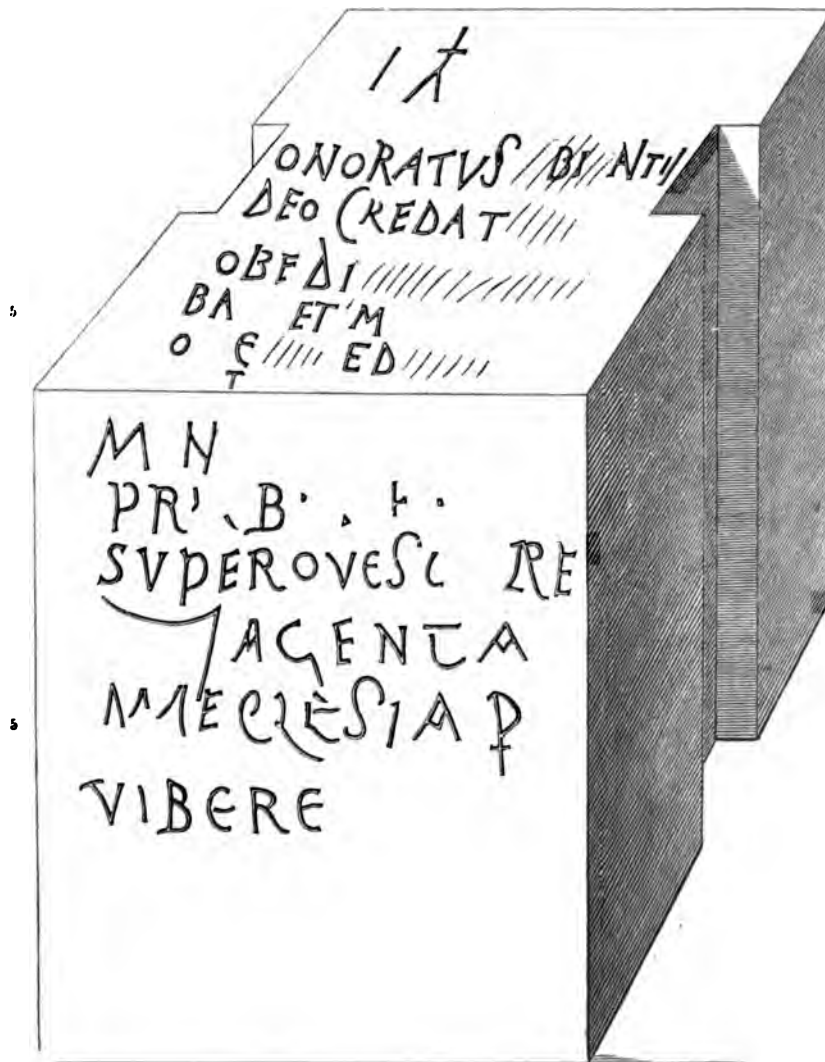 ONORATVS BI NTI
DEO CREDAT
OBEDI
BA ET M
O E ED
T
5
M N
PR B
SVPEROVESC RE
AGENTA
ECLESIA
VIBERE
5